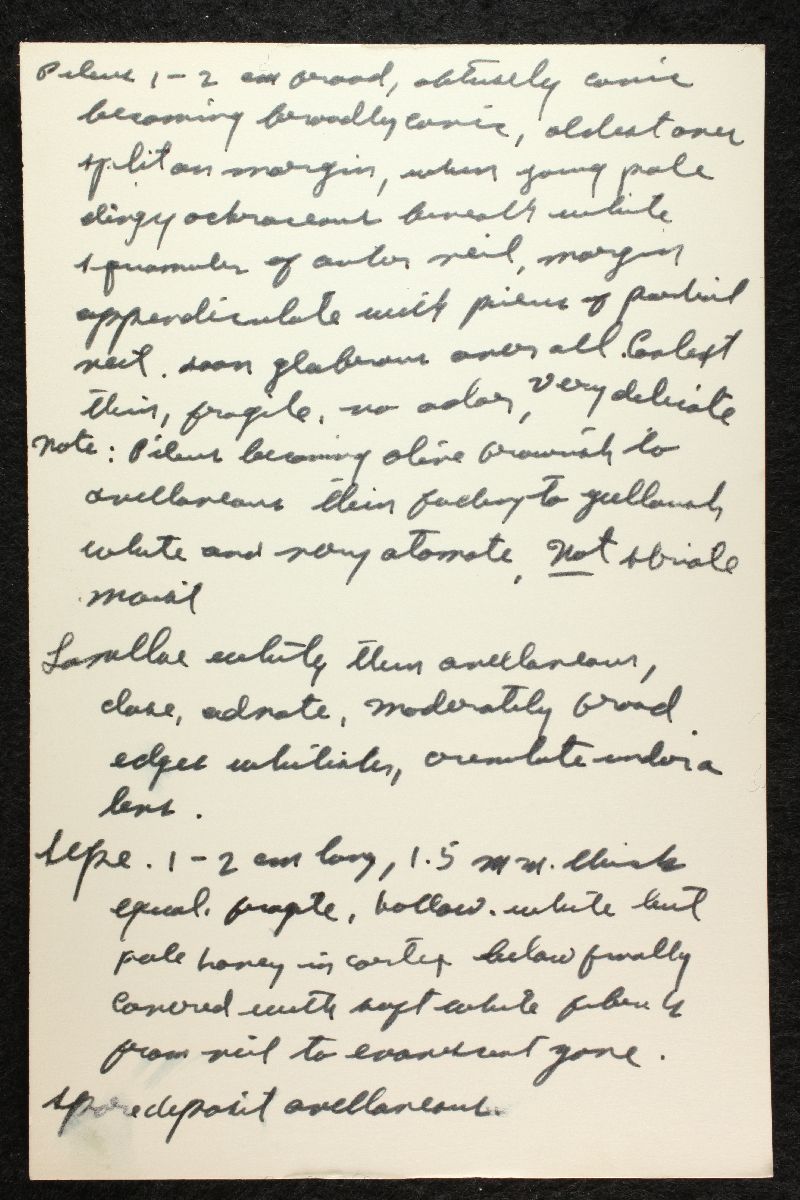 Pileus 1-2 cm broad, obtusely conic
becoming broadly conic, oldest ones
split on margin, when young pale
dingy ochraceous beneath white
squamules of outer veil, margin
appendiculate with pieces of partial
veil. soon glabrous over all. Context
thin, fragile, no odor, very delicate
Note: Pileus becoming olive brownish to
avellaneous then fading to yellowish
white and very atomate, Not striate
moist
Lamellae whitish then avellaneous,
close, adnate, moderately broad
edges whitish, crenulate under a
lens.
Stipe. 1-2 cm long, 1.5 mm. thick
equal. fragile, hollow. white but
pale honey in cortex below finally
covered with soft white fibrils
from veil to evanescent zone.
spore deposit avellaneous.